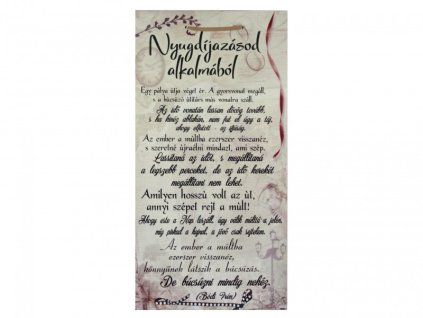 Nyugdíjazásod
alkalmából
Egy pálya útja véget ér. A gyorsvonat megáll,
s a búcsúzó útitárs más vonatra száll.
Az idő vonatán lassan döcög tovább,
s ha kinéz ablakán, nem fut el úgy a táj,
ahogy elfutott - az ifjúság.
Az ember a múltba ezerszer visszanéz,
s szeretné újraélni mindazt, ami szép.
Lassítaná az időt, s megállítaná
a legszebb perceket, de az idő kerekét
megállítani nem lehet.
Amilyen hosszú volt az út,
annyi szépet rejt a múlt!
Ahogy este a Nap leszáll, úgy válik múlttá a jelen,
míg a kaput, a jövő csak sejtelem.
Az ember a múltba
ezerszer visszanéz,
könnyűnek látszik a búcsúzás.
De búcsúzni mindig nehéz.
(Bódi Irén)